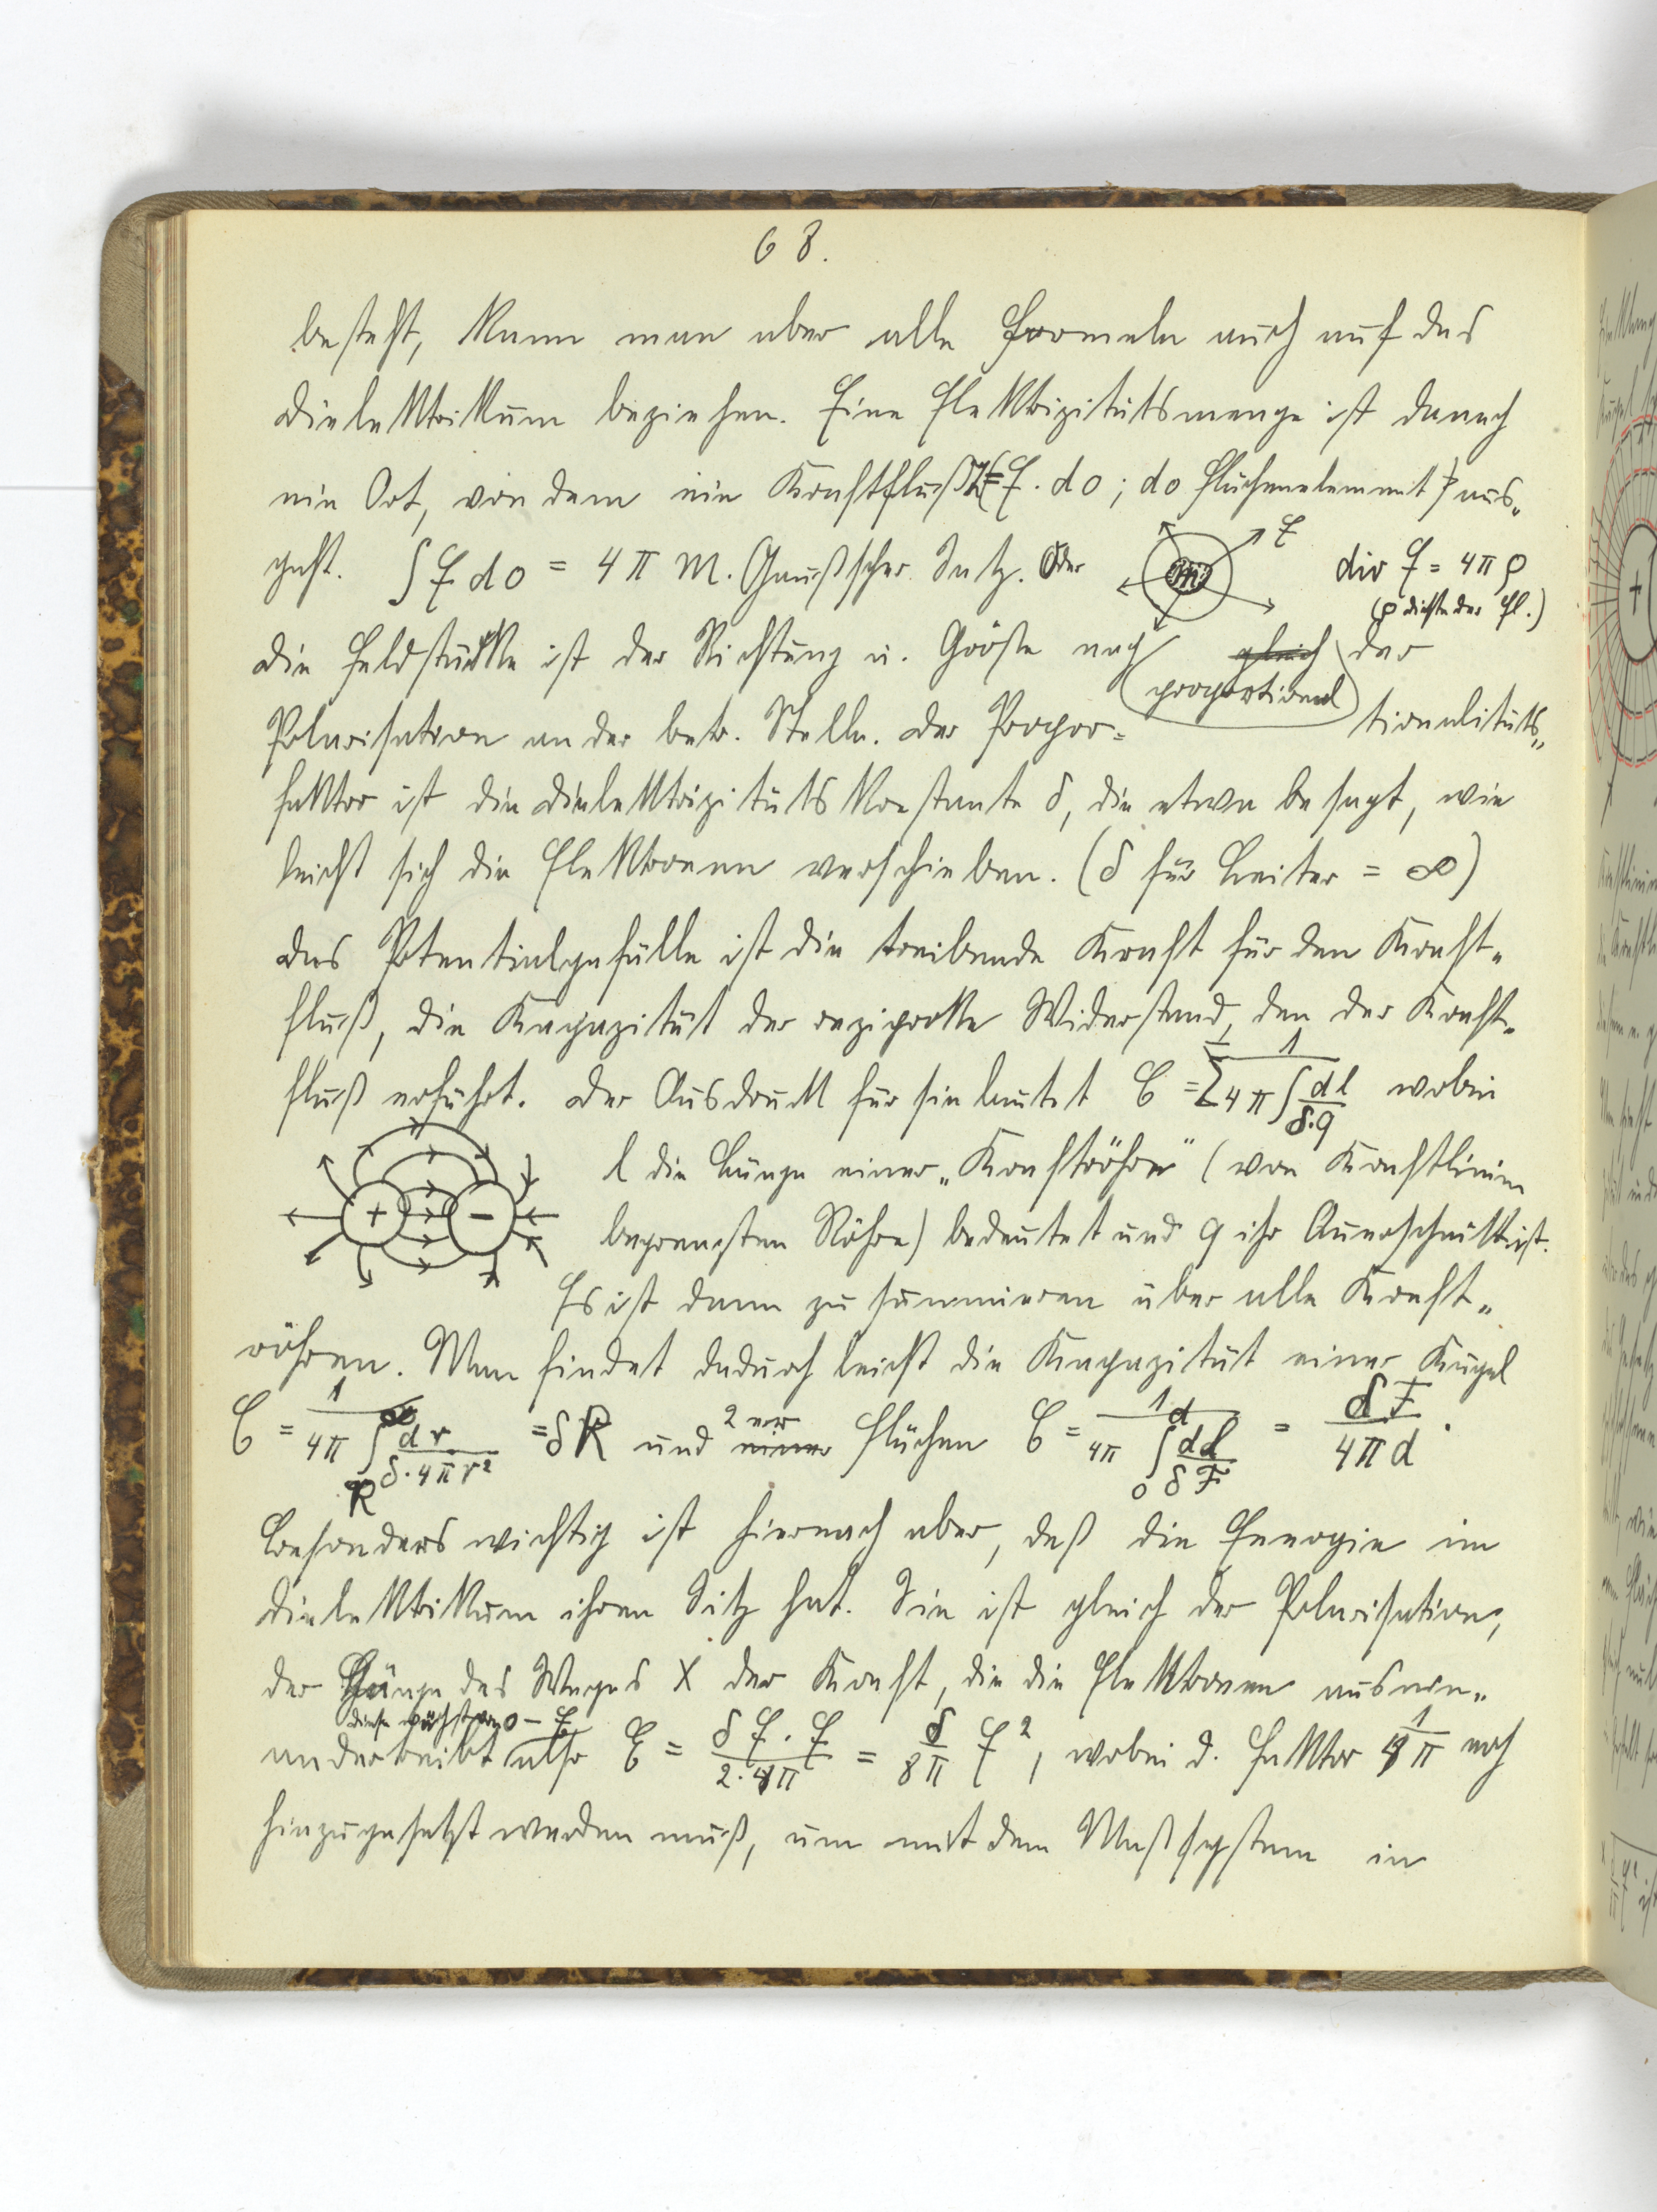 68.
besteht, kann man aber alle Formeln auch auf das
Dielektrikum beziehen. Eine Elektrizitätsmenge ist danach
ein Ort, von dem ein Kraftfluß (= E . do ; do Flächenelement) aus„
geht. ∫ E do = 4 π m. Gaußscher Satz. Oder
m E
div E = 4 π ρ
(ρ Dichte der El.)
Die Feldstärke ist der Richtung u. Größe nach gleich proportional der
Polarisation an der betr. Stelle. Der Propor= tionalitäts„
faktor ist die Dielektrizitätskonstante δ, die etwa besagt, wie
leicht sich die Elektronen verschieben. (δ für Leiter = ∞)
Das Potentialgefälle ist die treibende Kraft für den Kraft„
fluß, die Kapazität der reziproke Widerstand, den der Kraft„
fluß erfährt. Der Ausdruck für sie lautet C = Σ 1 / 4 π ∫ dl / δ.q wobei
l die Länge einer „Kraftröhre" (von Kraftlinien
+ −
begrenzten Röhre) bedeutet und q ihr Querschnitt ist.
Es ist dann zu summieren über alle Kraft„
röhren. Man findet dadurch leicht die Kapazität einer Kugel
C = 1 / 4π ∫_R^∞ dr / δ.4πr² = δR und einer 2er Flächen C = 1 / 4π ∫_0^d dl / δF = δF / 4πd .
Besonders wichtig ist hiernach aber, daß die Energie im
Dielektrikum ihren Sitz hat. Sie ist gleich der Polarisation,
der Länge des Weges X der Kraft, die die Elektronen ausein„
diese wächst von 0 – E
andertreibt also E = δ E . E / 2 . 4π = δ / 8π E², wobei d. Faktor 4π noch
hinzugesetzt werden muß, um mit dem Maßsystem in